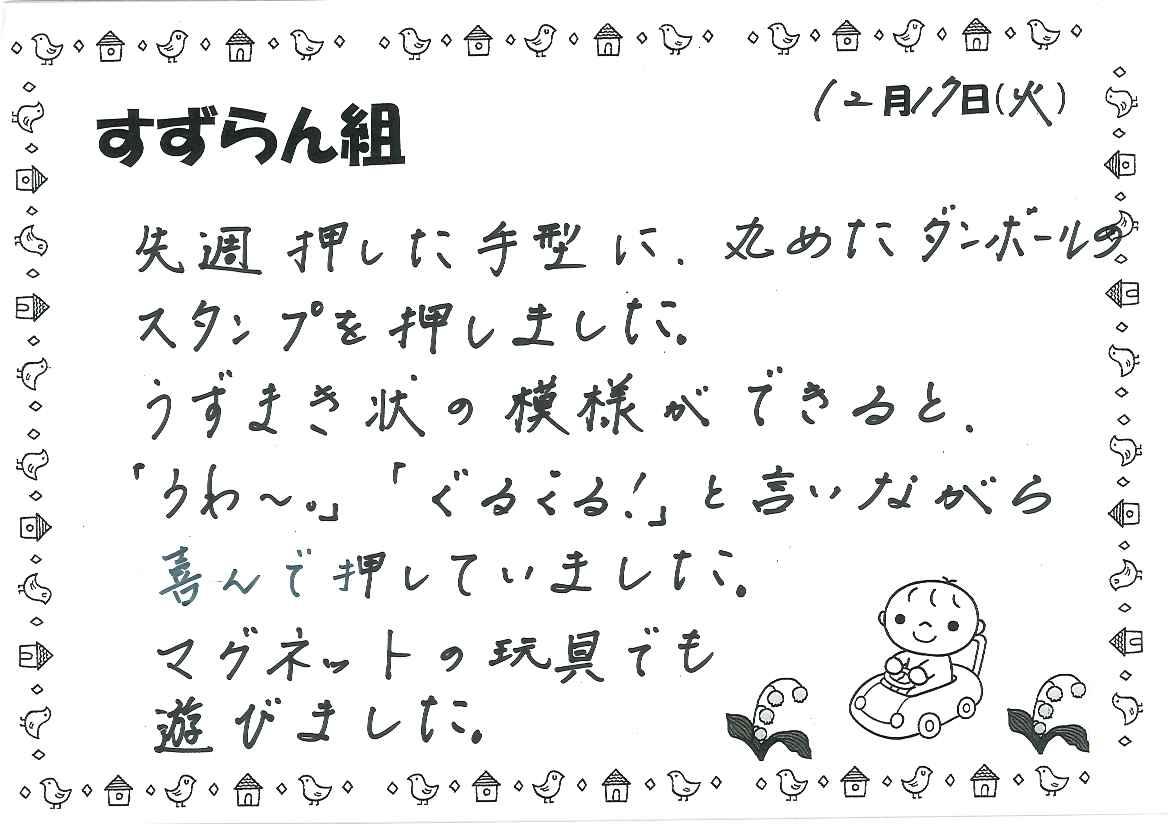 12月17日(火)
すずらん組
先週押した手型に、丸めたダンボールの
スタンプを押しました。
うずまき状の模様ができると、
「うわ～。」「ぐるぐる！」と言いながら
喜んで押していました。
マグネットの玩具でも
遊びました。